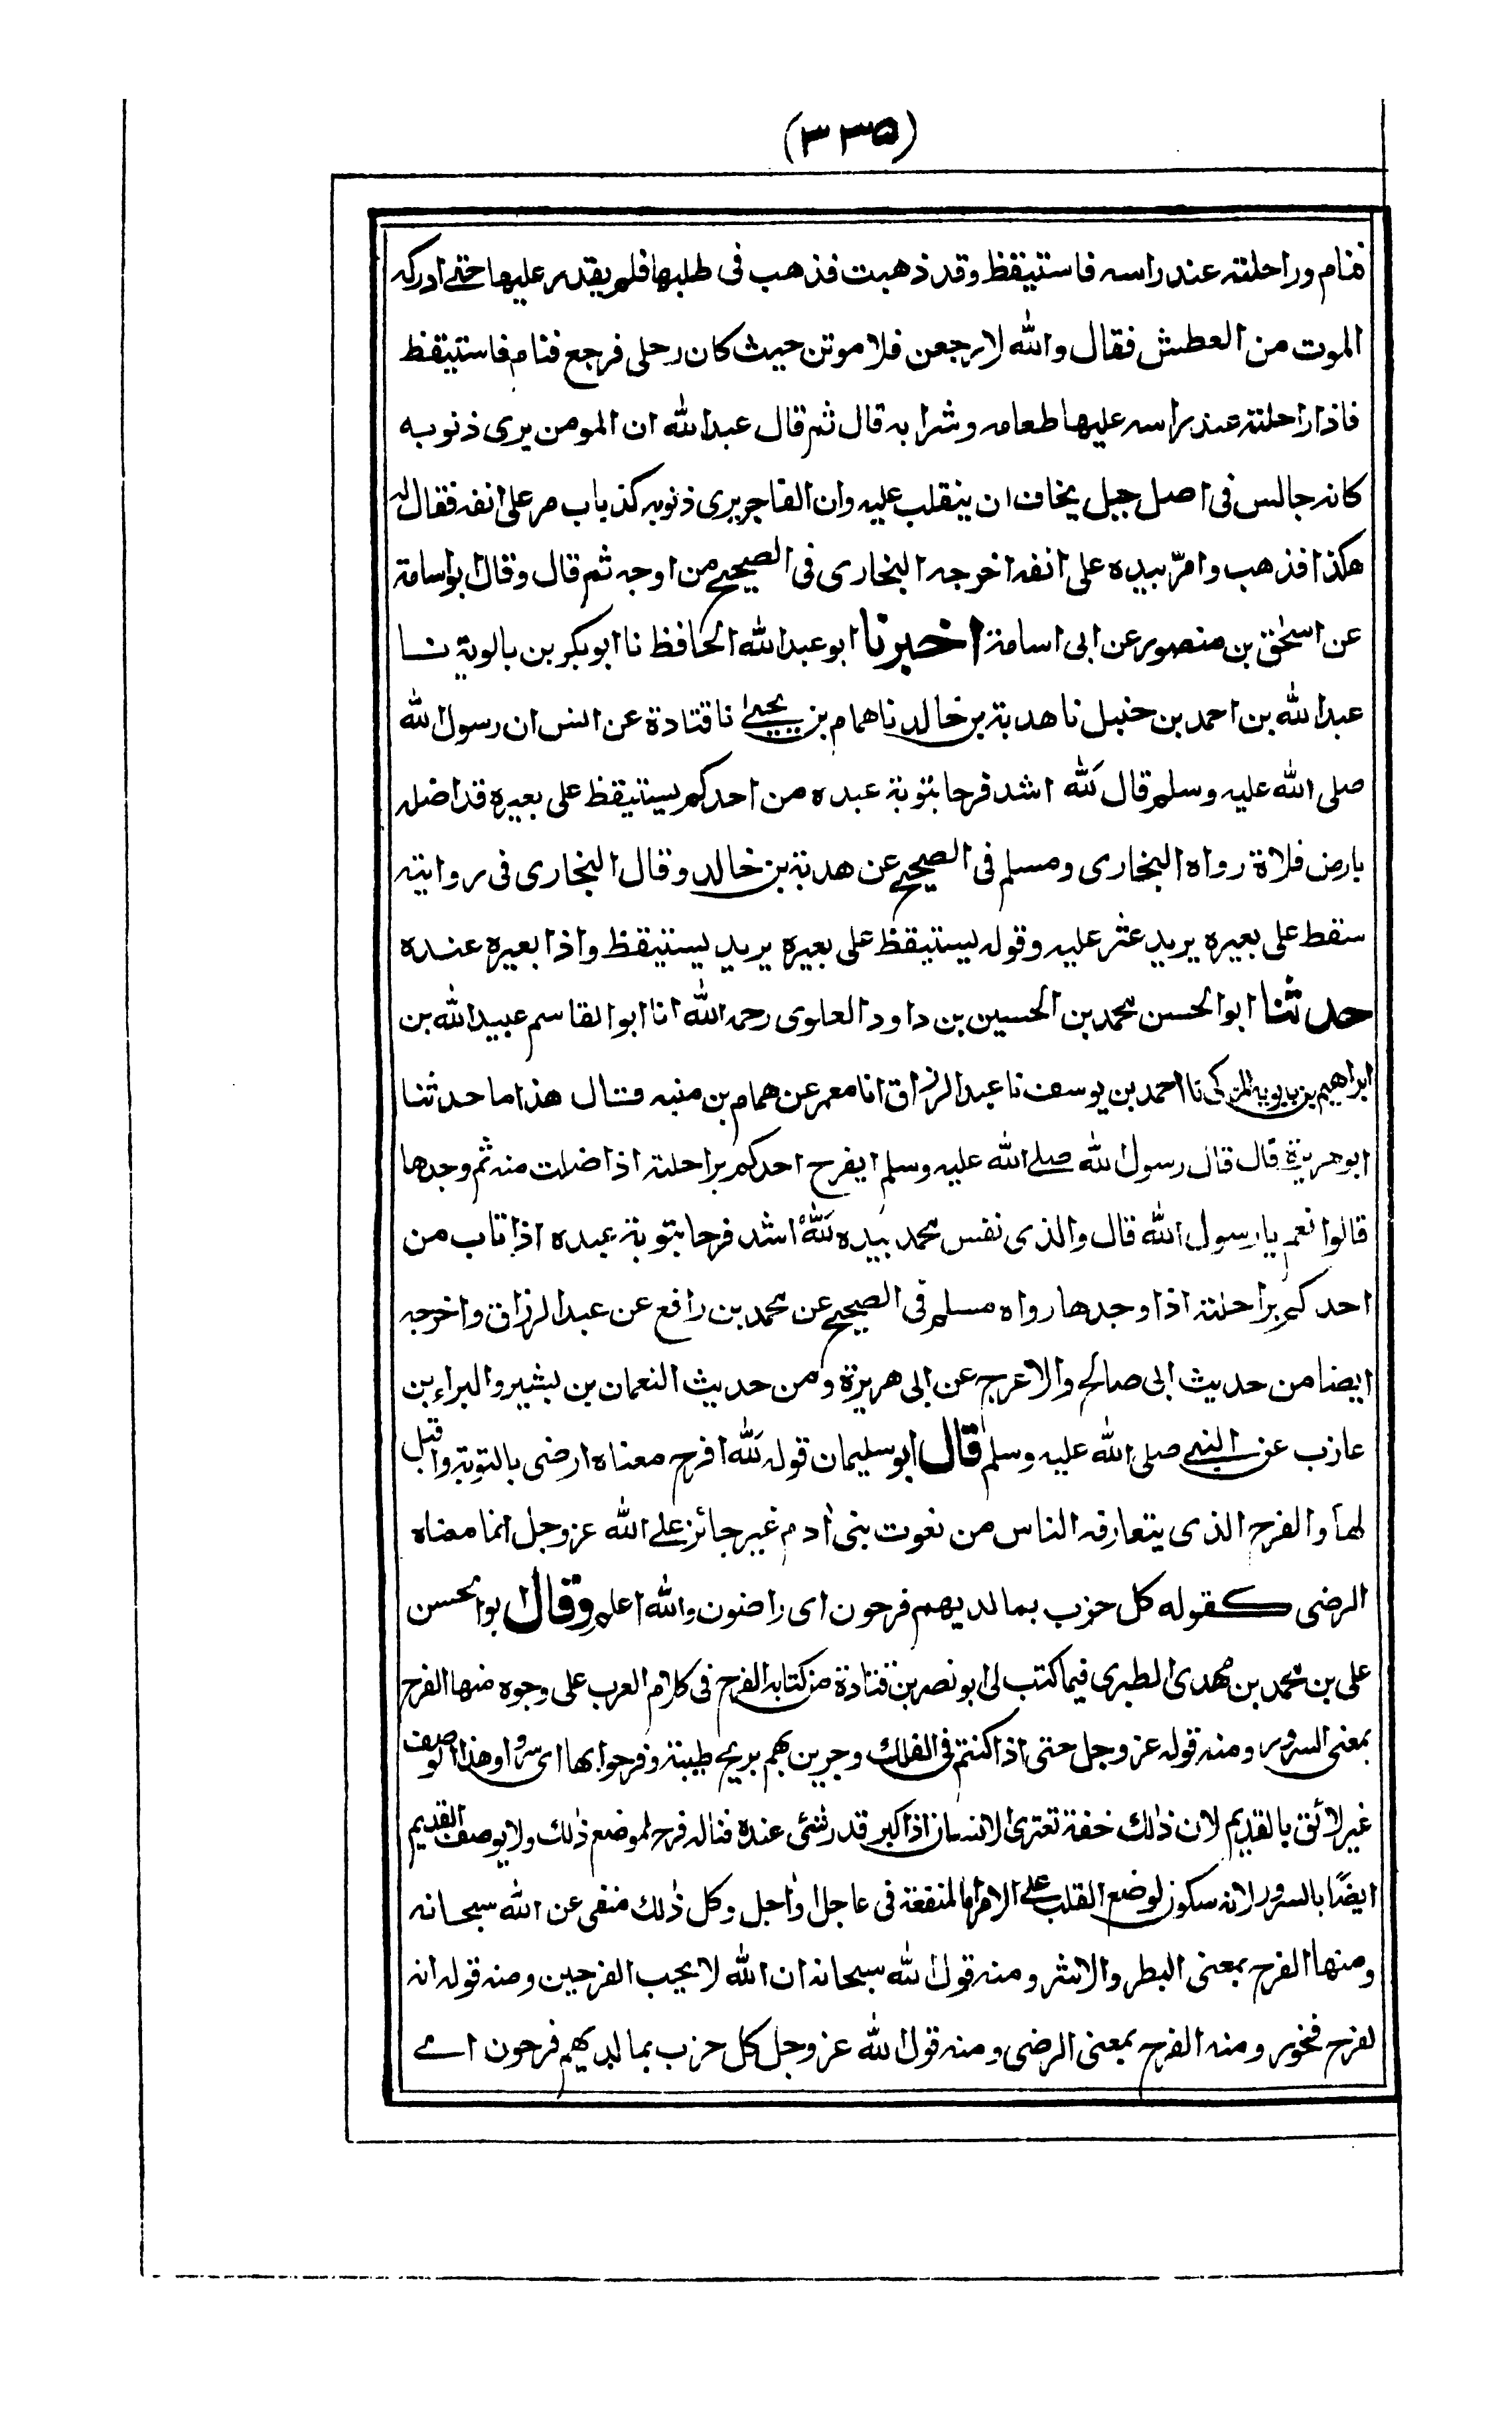 (۳۳۵)
فنام وراحلته عند راسه فاستيقظ وقد ذهبت فذهب فى طلبها فلم يقدر عليها حتى ادركه
الموت من العطش فقال والله لارجعن فلاموتن حيث كان رحلى فرجع فنام فاستيقظ
فاذا راحلته عند راسه عليها طعامه وشرابه قال ثم قال عبدالله ان المومن يرى ذنوبه
كانه جالس فى اصل جبل يخاف ان ينقلب عليه وان الفاجر يرى ذنوبه كذباب مر على انفه فقال له
هكذا فذهب وامرّ بيده على انفه اخرجه البخارى فى الصحيح من اوجه ثم قال وقال ابواسامة
عن اسحٰق بن منصور عن ابى اسامة اخبرنا ابوعبدالله الحافظ نا ابوبكر بن بالوية نا
عبدالله بن احمد بن حنبل نا هدبة بن خالد نا همام بن يحيى نا قتادة عن انس ان رسول الله
صلى الله عليه وسلم قال لَلّٰه اشد فرحا بتوبة عبده من احدكم يستيقظ على بعيره قد اضله
بارض فلاة رواه البخارى ومسلم فى الصحيح عن هدبة بن خالد وقال البخارى فى روايته
سقط على بعيره يريد عثر عليه وقوله يستيقظ على بعيره يريد يستيقظ واذا بعيره عنده
حدثنا ابوالحسن محمد بن الحسين بن داود العلوى رحمه الله انا ابوالقاسم عبيدالله بن
ابراهيم بن بابويه المزكى نا احمد بن يوسف نا عبدالرزاق انا معمر عن همام بن منبه قال هذا ما حدثنا
ابوهريرة قال قال رسول الله صلى الله عليه وسلم ايفرح احدكم براحلته اذا ضلت منه ثم وجدها
قالوا نعم يا رسول الله قال والذى نفس محمد بيده لَلّٰهُ اشد فرحا بتوبة عبده اذا تاب من
احدكم براحلته اذا وجدها رواه مسلم فى الصحيح عن محمد بن رافع عن عبدالرزاق واخرجه
ايضا من حديث ابى صالح والاعرج عن ابى هريرة ومن حديث النعمان بن بشير والبراء بن
عازب عن النبى صلى الله عليه وسلم قال ابوسليمان قوله لَلّٰه افرح معناه ارضى بالتوبة واقبل
لها والفرح الذى يتعارفه الناس من نعوت بنى اٰدم غير جائز على الله عزوجل انما معناه
الرضى كقوله كل حزب بما لديهم فرحون اى راضون والله اعلم وقال ابوالحسن
على بن محمد بن مهدى الطبرى فيما كتب لى ابونصر بن قتادة من كتابه الفرح فى كلام العرب على وجوه منها الفرح
بمعنى السرور ومنه قوله عزوجل حتى اذا كنتم فى الفلك وجرين بهم بريح طيبة وفرحوا بها اى سروا وهذا الوصف
غير لائق بالقديم لان ذٰلك خفة تعترى الانسان اذا كبر قدر شئى عنده فناله فرح لموضع ذٰلك ولا يوصف القديم
ايضًا بالسرور لانه سكون لوضع القلب على الامر اما لمنفعة فى عاجل او اٰجل وكل ذٰلك منفى عن الله سبحانه
ومنها الفرح بمعنى البطر والاشر ومنه قول الله سبحانه ان الله لا يحب الفرحين ومنه قوله انه
لفرح فخور ومنه الفرح بمعنى الرضى ومنه قول الله عزوجل كل حزب بما لديهم فرحون اى